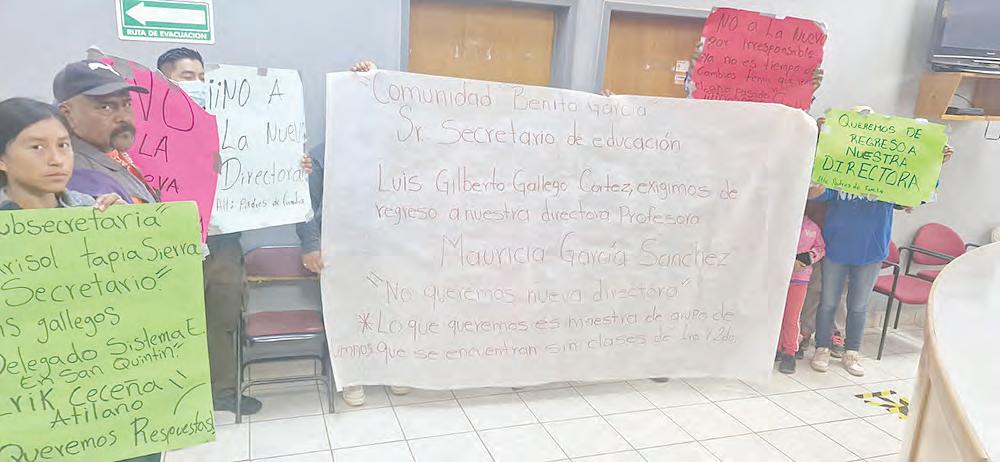 RUTA DE EVACUACION
NO
LA
eva
¡¡NO A
La Nueva
Directora
Att: Padres de familia
"Comunidad" Benito García
Sr. Secretario de educación
Luis Gilberto Gallego Cortez, exigimos de
regreso a nuestra directora Profesora
Mauricia García Sanchez
"No queremos nueva directora"
*Lo que queremos es maestra de grupo de
umnos que se encuentran sin clases de 1ro y 2do.
NO a La Nueva
Por irresponsable
Ya no es tiempo de
Cambios
QUEREMOS DE
REGRESO A
NUESTRA
DIRECTORA
Att. Padres de familia
ubsecretaria"
arisol tapia Sierra
Secretario"
is gallegos
Delegado Sistema E.
En San Quintín?
Erik Ceceña"
Atilano
Queremos Respuestas!